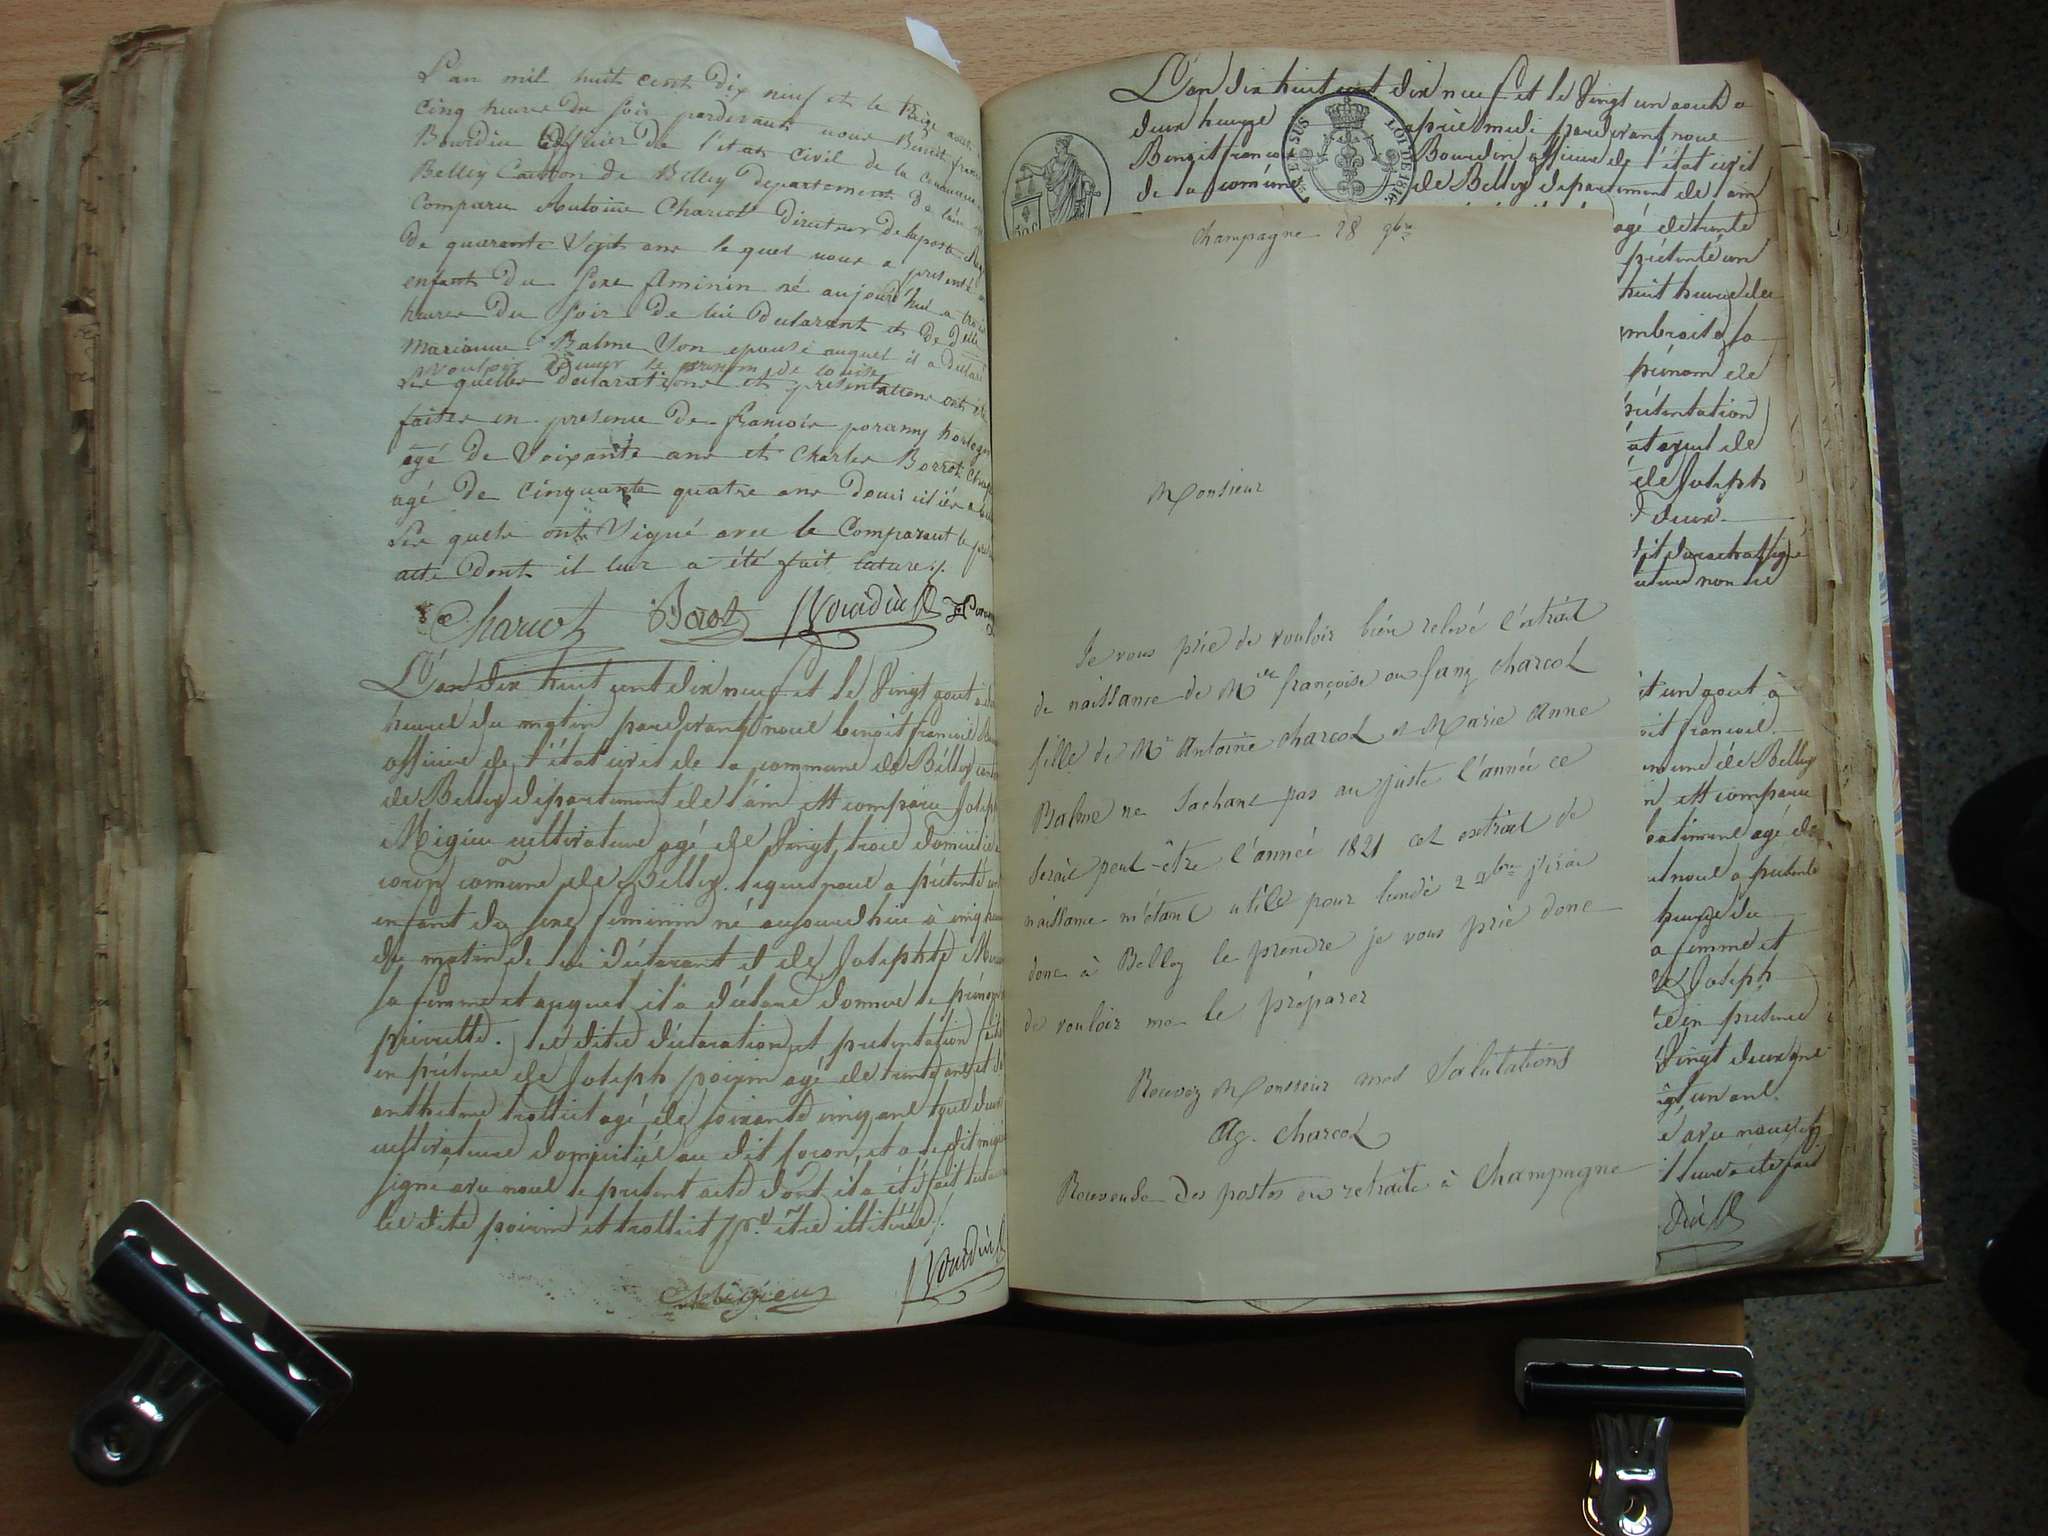 L'an mil huit cent dix neuf et le treize aout
cinq heures du soir pardevant nous Benoit françois
Bourdin officier de l'etat civil de la commune
Belley Canton de Belley departement de l'ain
Comparu Antoine Charcot Directeur de la poste
De quarante sept ans le quel nous a presenté
enfant du sexe féminin né aujourd'hui a trois
heures du soir de lui declarant et de Delle
Marianne Balme son epouse auquel il a declaré
vouloir donner le prenom de Louise
les quelles declarations et presentations ont été
faites en presence de françois poranny
agé de soixante ans et Charles Borrot
agé de cinquante quatre ans domiciliés a
les quels ont signé avec le Comparant le
acte dont il leur a été fait lature ./.
Charcot
Borot
Bourdin
L'an dix huit cent dix neuf et le vingt aout à
heures du matin pardevant nous benoit francois
officier de l'état civil de la commune de Belley
de Belley département de l'ain est comparu Joseph
Migieu cultivateur agé de vingt trois domicilié
coron comune de Belley. lequel nous a présenté un
enfant du sexe feminin né aujourdhui à cinq
du matin de lui déclarant et de Josephte
sa femme et auquel il a déclaré donner le prénom
pierrette. les dites déclaration et présentation
en présence de Joseph poirin agé de trente ans et
anthelme trollict agé de soixante cinq ans tous deux
cultivateurs domiciliés au dit coron, et a le dit
signé avec nous le présent acte dont il a été fait
les dits poirin et trollict pr. être illitérés ./.
Migieu
Bourdin
L'an dix huit cent dix neuf et le vingt un aout a
deux heures après midi pardevant nous
Benoit françois Bourdin officier de l'état civil
de la comune de Belley département de l'ain
LOI DE 1816
agé de trente
présenté un
huit heures du
sa
prénom de
présentation
de
de Joseph
deux
non le
Champagne 28 9bre
Monsieur
Je vous prie de vouloir bien relevé l'extrait
de naissance de Mlle françoise ou fany charcot
fille de Mr Antoine charcot et Marie Anne
Balme ne sachant pas au juste l'année ce
serait peut-être l'année 1821 cet extrait de
naissance m'étant utile pour lundi 2 xbre j'irai
donc à Belley le prendre je vous prie donc
de vouloir me le préparer
Recevez Monsieur mes Salutations
Ag. charcot
des postes en retraite à Champagne
un aout à
oit francois
de Belley
est comparu
agé de
nous a présenté
heures du
sa femme et
Joseph
en présence
vingt deux ans
un ans.
avec nous
leur a été fait